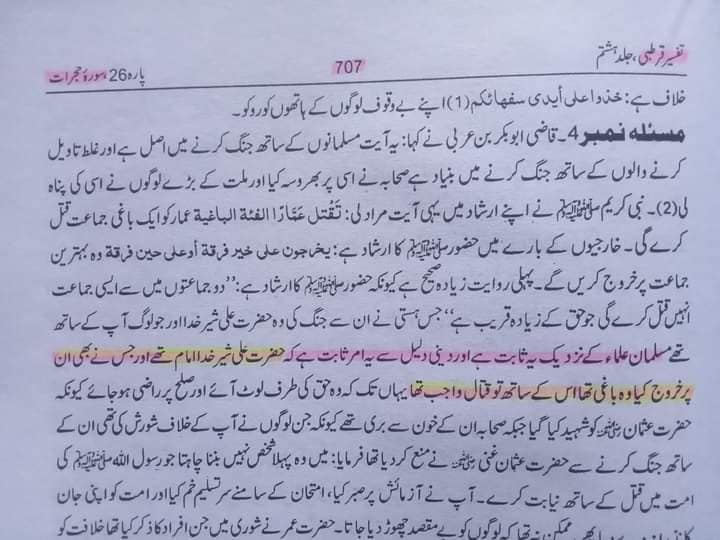 تفسیر قرطبی، جلد ہشتم 707 پارہ 26، سورۂ حجرات
خلاف ہے: خذوا علی أيدی سفهائكم (1) اپنے بے وقوف لوگوں کے ہاتھوں کو روکو۔
مسئلہ نمبر 4۔ قاضی ابوبکر بن عربی نے کہا: یہ آیت مسلمانوں کے ساتھ جنگ کرنے میں اصل ہے اور غلط تاویل
کرنے والوں کے ساتھ جنگ کرنے میں بنیاد ہے صحابہ نے اسی پر بھروسہ کیا اور ملت کے بڑے لوگوں نے اسی کی پناہ
لی (2)۔ نبی کریم ﷺ نے اپنے ارشاد میں یہی آیت مراد لی: تَقْتل عَمَّارًا الفئة الباغية عمار کو ایک باغی جماعت قتل
کرے گی۔ خارجیوں کے بارے میں حضور ﷺ کا ارشاد ہے: يخرجون علی خير فرقة أو علی حين فرقة وہ بہترین
جماعت پر خروج کریں گے۔ پہلی روایت زیادہ صحیح ہے کیونکہ حضور ﷺ کا ارشاد ہے: ”دو جماعتوں میں سے ایسی جماعت
انہیں قتل کرے گی جو حق کے زیادہ قریب ہے“ جس ہستی نے ان سے جنگ کی وہ حضرت علی شیر خدا اور جو لوگ آپ کے ساتھ
تھے مسلمان علماء کے نزدیک یہ ثابت ہے اور دینی دلیل سے یہ امر ثابت ہے کہ حضرت علی شیر خدا امام تھے اور جس نے بھی ان
پر خروج کیا وہ باغی تھا اس کے ساتھ تو قتال واجب تھا یہاں تک کہ وہ حق کی طرف لوٹ آئے اور صلح پر راضی ہو جائے کیونکہ
حضرت عثمان رضی اللہ عنہ کو شہید کیا گیا جبکہ صحابہ ان کے خون سے بری تھے کیونکہ جن لوگوں نے آپ کے خلاف شورش کی تھی ان کے
ساتھ جنگ کرنے سے حضرت عثمان غنی رضی اللہ عنہ نے منع کر دیا تھا فرمایا: میں وہ پہلا شخص نہیں بننا چاہتا جو رسول اللہ ﷺ کی
امت میں قتل کے ساتھ نیابت کرے۔ آپ نے آزمائش پر صبر کیا، امتحان کے سامنے سر تسلیم خم کیا اور امت کو اپنی جان
ممکن نہ تھا کہ لوگوں کو بے مقصد چھوڑ دیا جاتا۔ حضرت عمر نے شوریٰ میں جن افراد کا ذکر کیا تھا خلافت کو